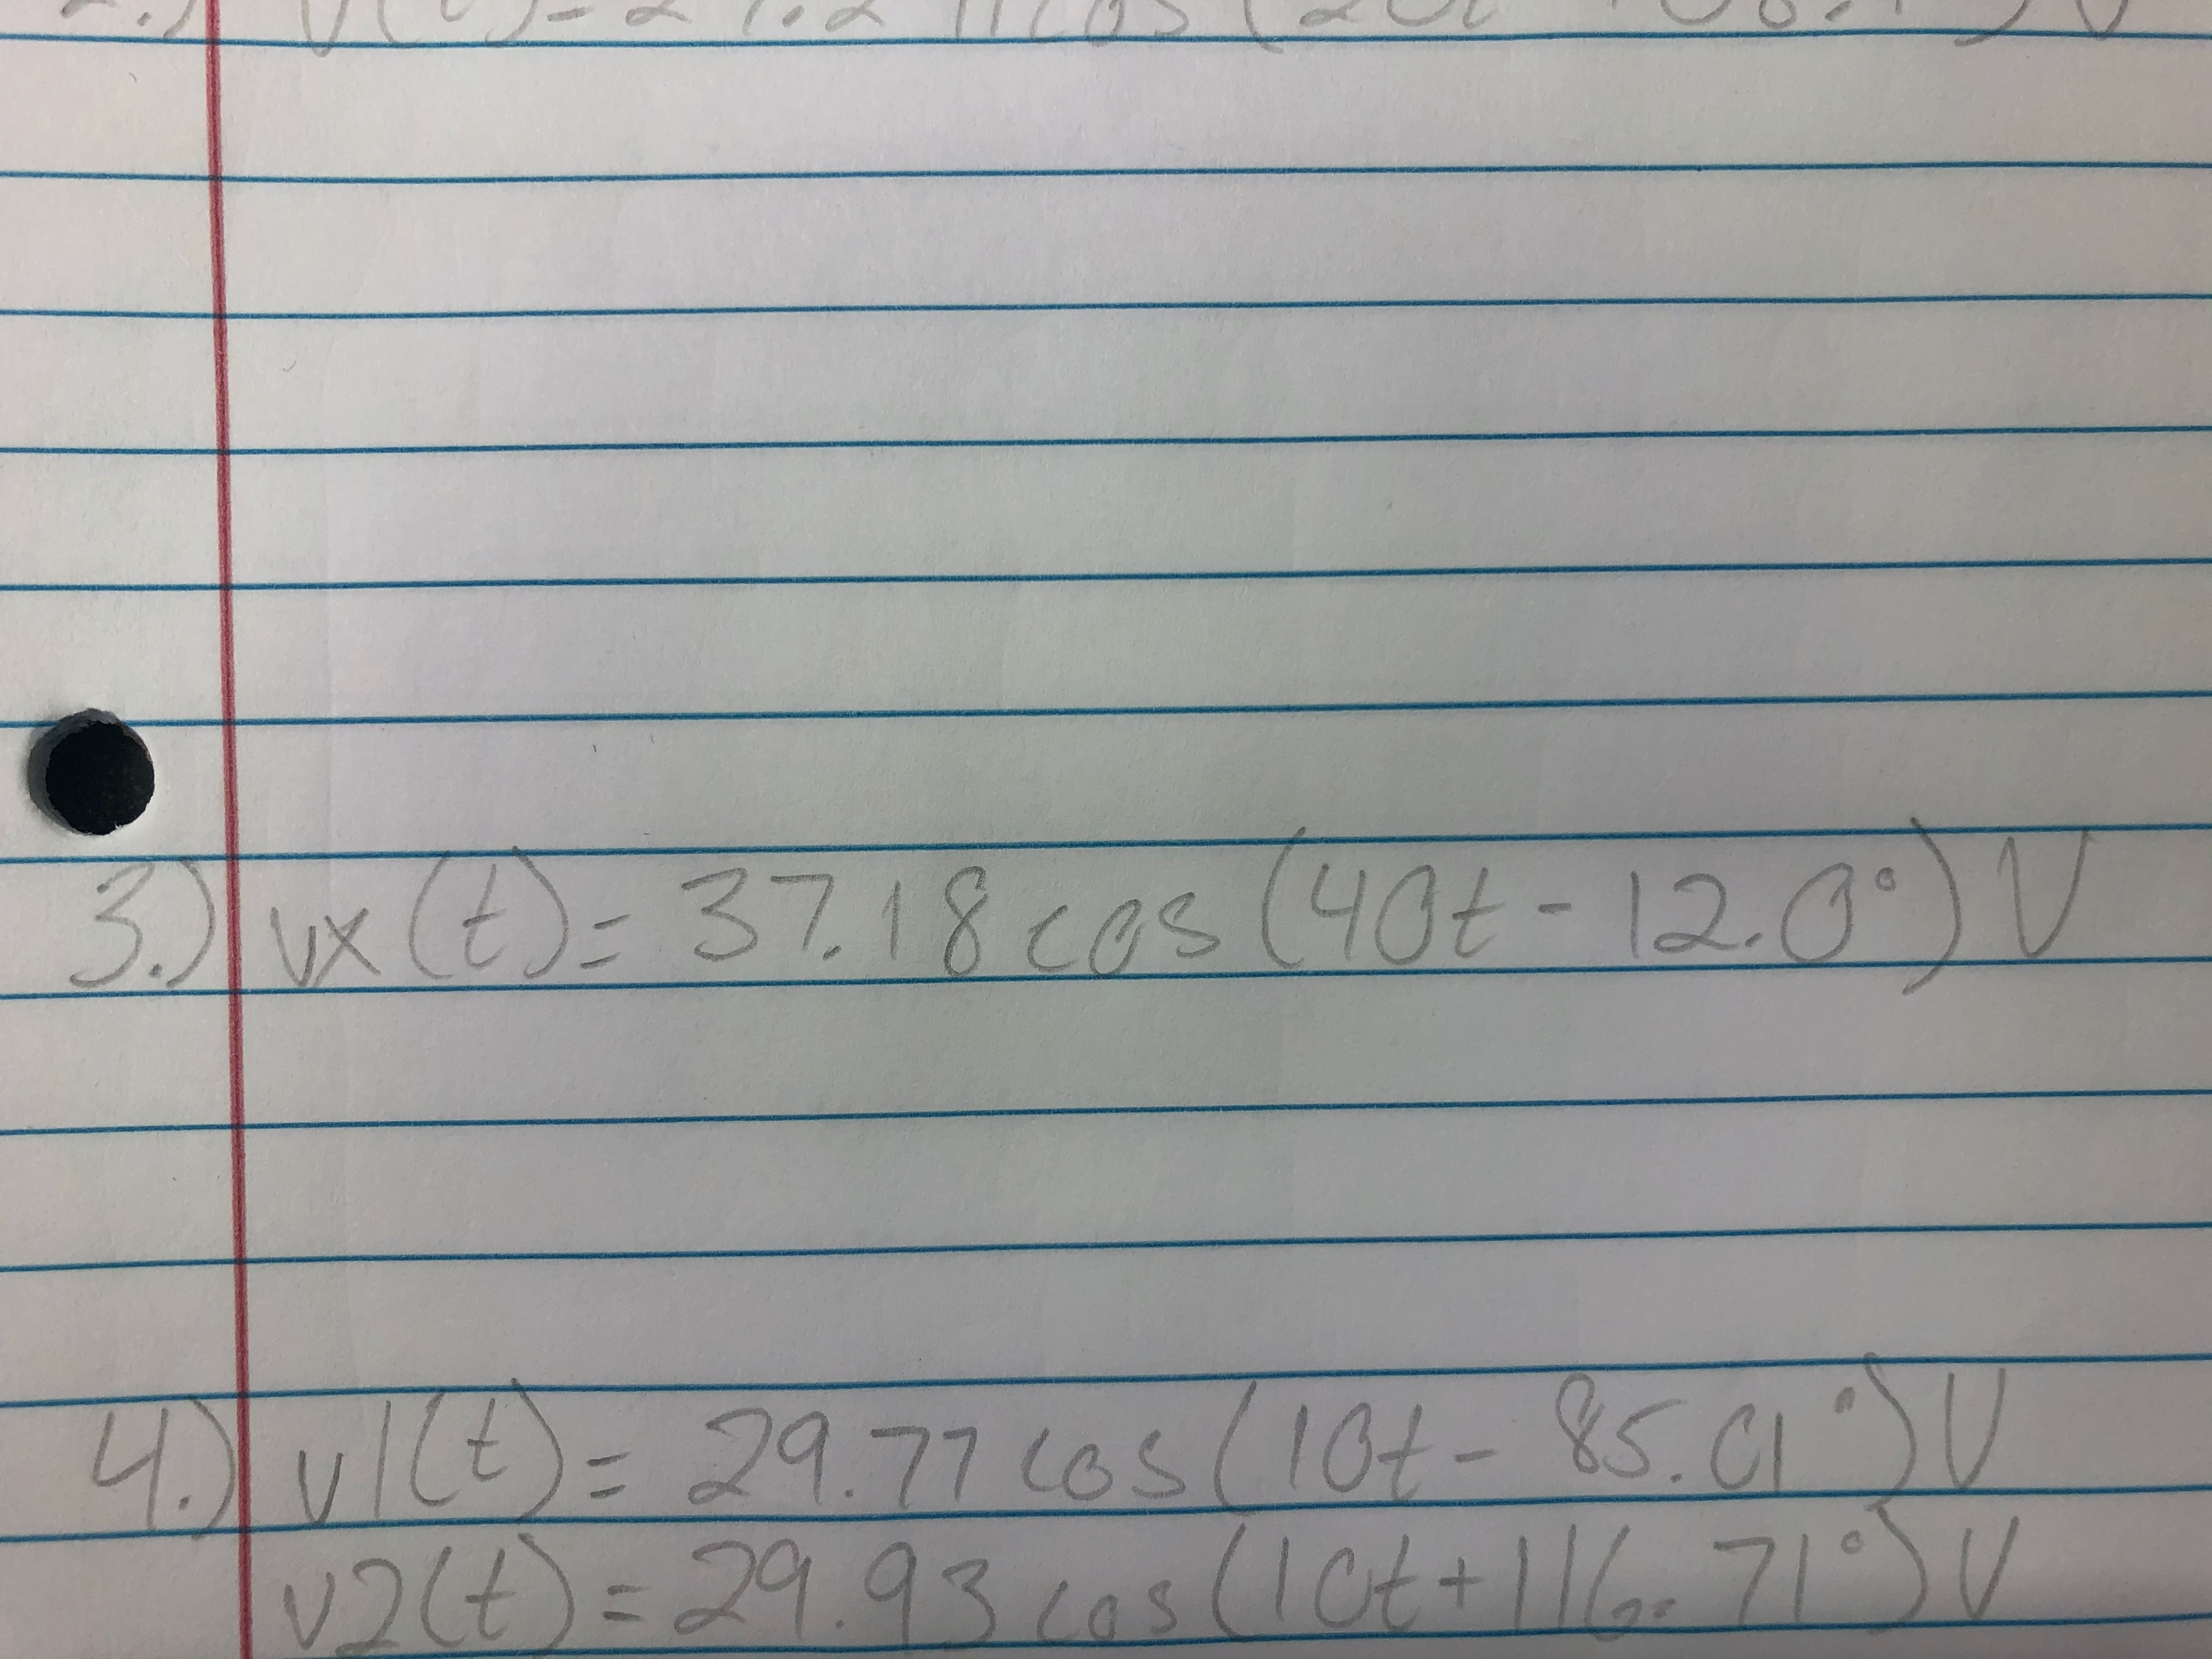 cos(20t
3.) vx(t) = 37.18 cos(40t - 12.0°) V
4.) v1(t) = 29.77 cos(10t - 85.01°) V
v2(t) = 29.93 cos(10t + 116.71°) V